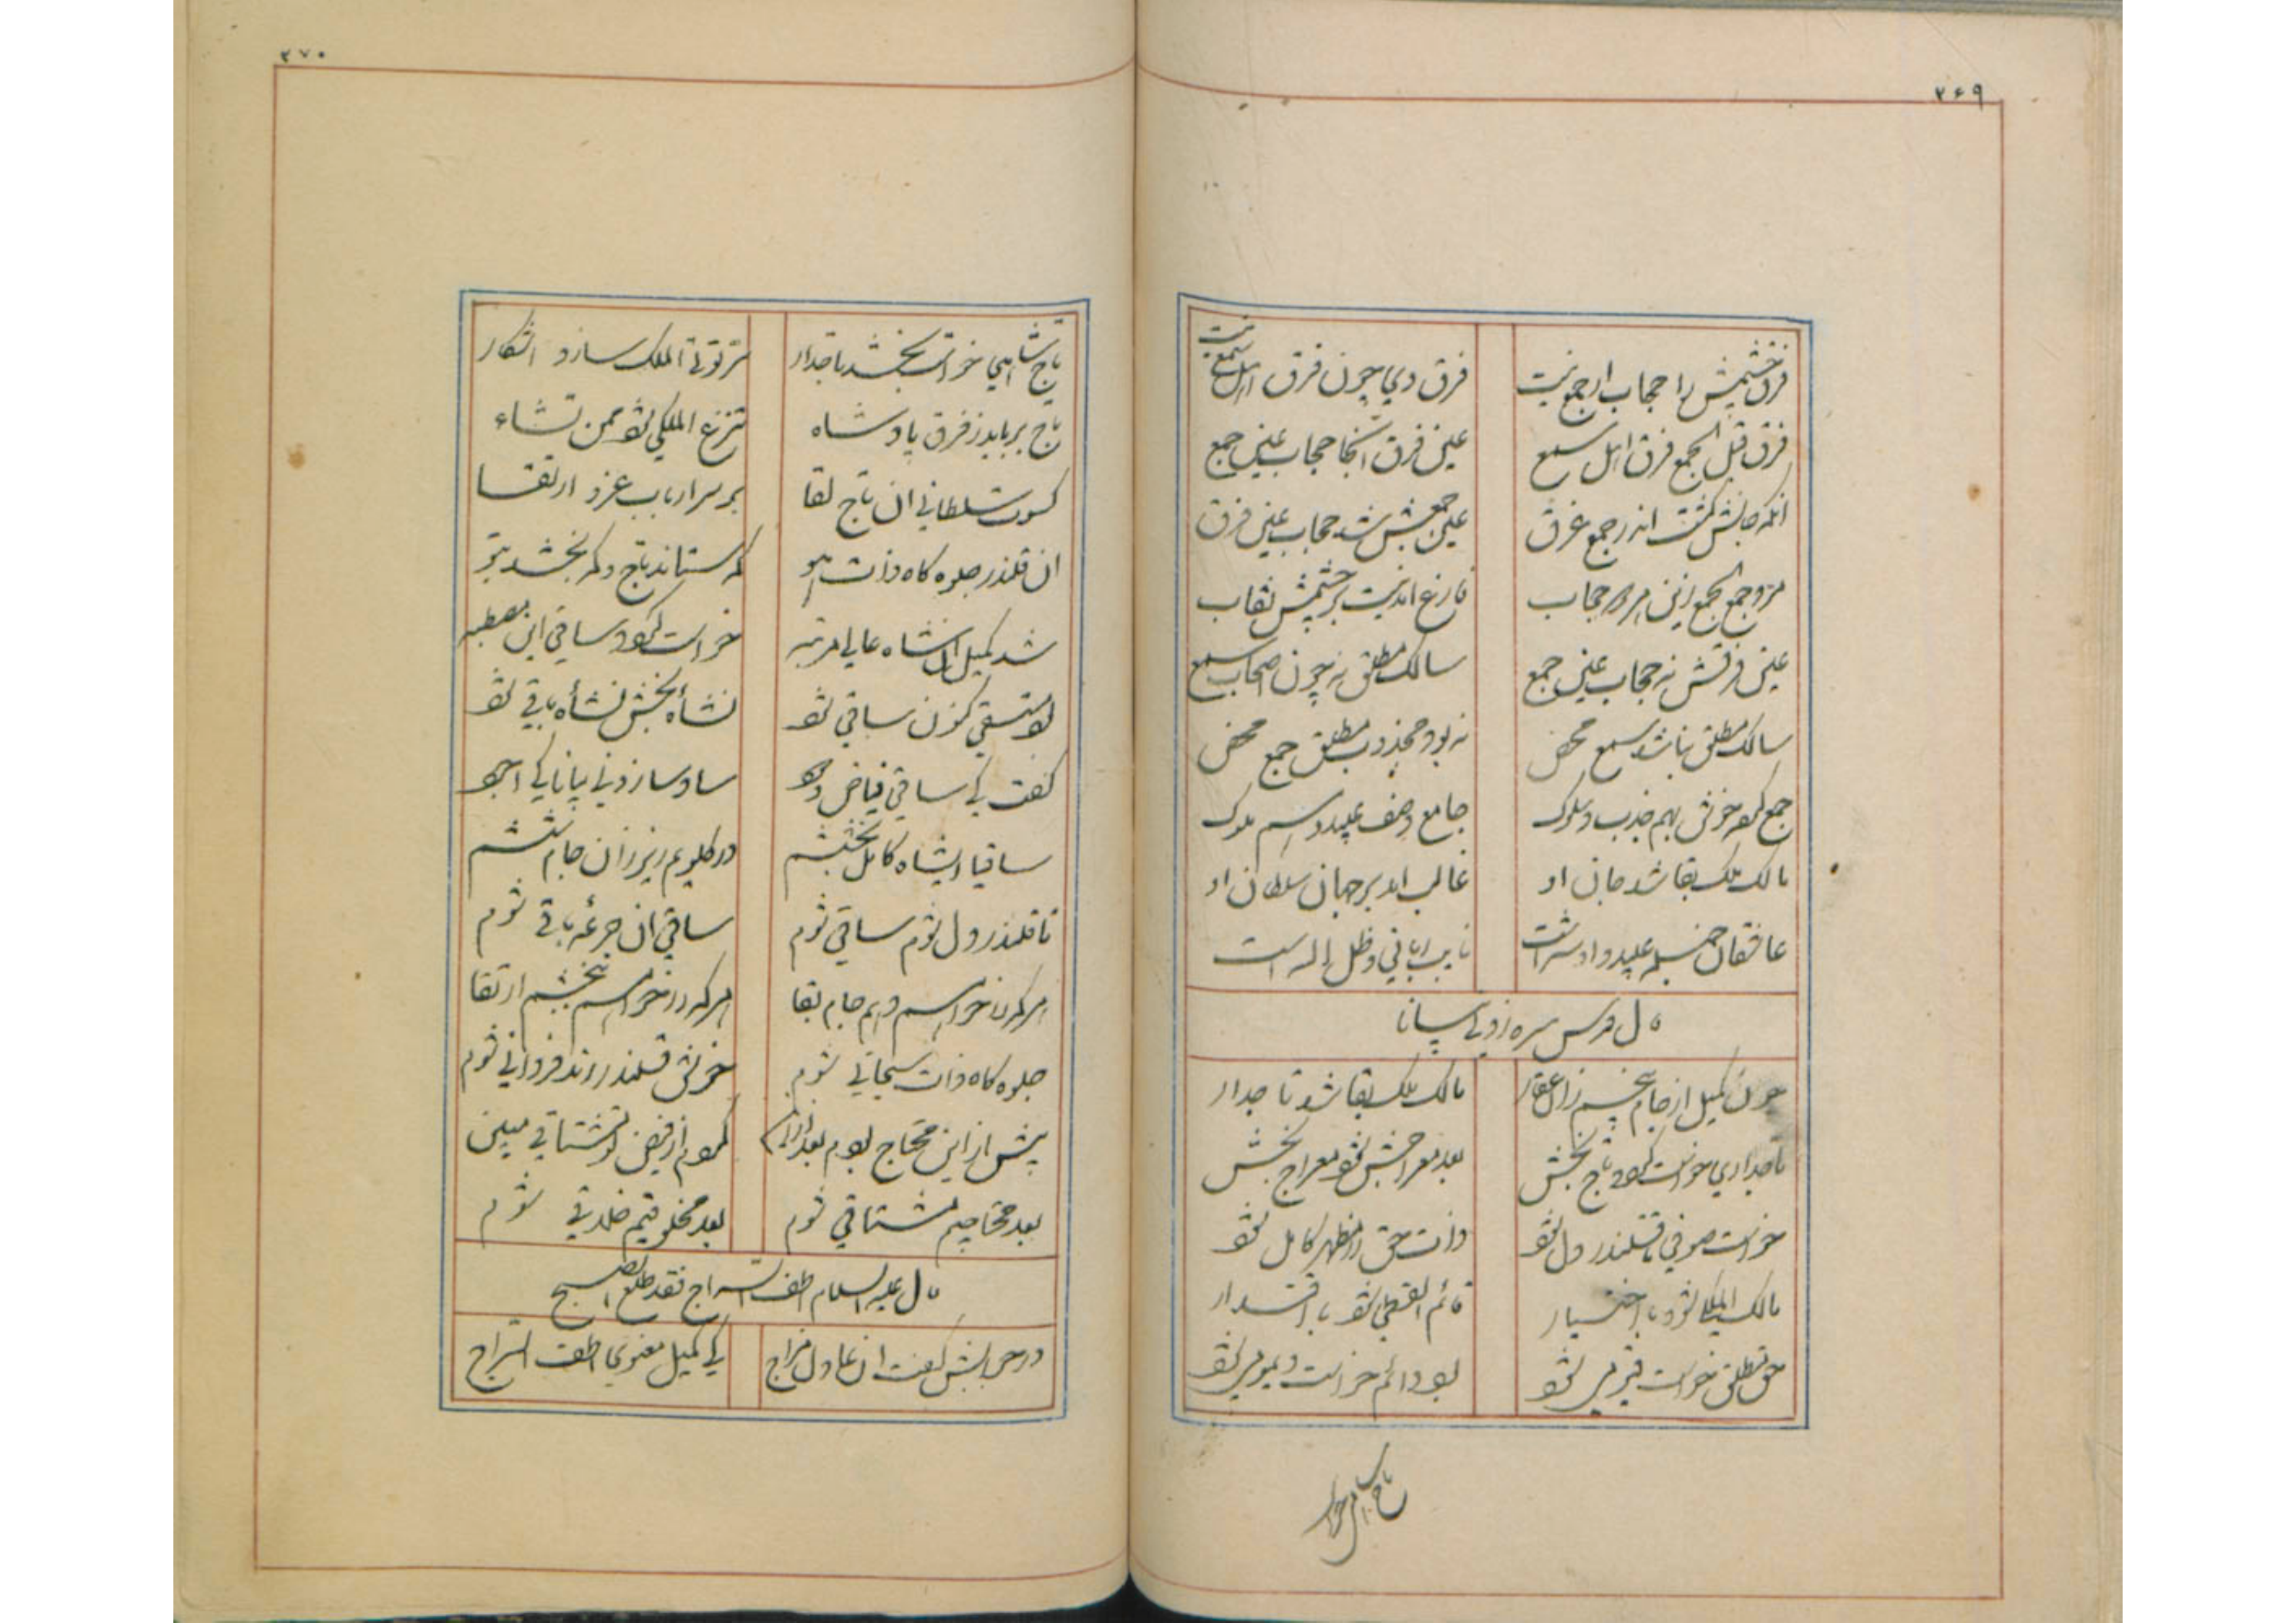 ۲۶۹
فرق چشمش را حجاب از جمع نیست
فرق وی چون فرق اهل سمع نیست
فرق قبل الجمع فرق اهل سمع
عین فرق آنجا حجاب عین جمع
انکه جانش کشت اندر جمع غرق
عین جمعش شد حجاب عین فرق
مرد جمع الجمع زین هر دو حجاب
فارغ امد نیست بر چشمش نقاب
عین فرقش نه حجاب عین جمع
سالک مطلق نه چون اصحاب سمع
سالک مطلق نباشد سمع محض
نه بود مجذوب مطلق جمع محض
جمع کرده خویش بهم جذب و سلوک
جامع وصف عبید و اسم ملوک
مالک ملک بقا شد جان او
غالب امد بر جهان سلطان او
عاشقان جمله عبید و او شه است
نایب ربانی و ظل اله است
قال قدس سره زدنی بیانا
چون کمیل از جام بیخیم زان عقار
مالک ملک بقا شد تاجدار
تاجداری خواست کردد تاج بخش
بعد معراجش شود معراج بخش
خواست صوفی تا قلندر دل شود
ذات حق را مظهر کامل شود
مالک الملکی شود با اختیار
قائم القسطی شود با اقتدار
حق مطلق خواست قیومی شود
بود دائم خواست دیمومی شود
تاج شاهی خواست
۲۷۰
تاج شاهی خواست بخشد تاجدار
سر تؤتی الملک سازد اشکار
تاج برباید ز فرق پادشاه
تنزع الملکی شود ممن تشاء
کسوت سلطانی ان تاج لقا
بر سر ارباب عز و ارتقا
ان قلندر جلوه کاه ذات هو
که ستاند تاج و که بخشد بتو
شد کمیل ان شاه عالی مرتبه
خواست کردد ساقی این مصطبه
بود مستسقی کنون ساقی شود
نشأه بخش نشأه باقی شود
کفت کی ساقی فیاض وجود
ساز و ساز زدنی بیانا کی
ساقیا ای شاه کامل بخششم
در کلویم ریز زان جام ششم
تا قلندر دل شوم ساقی شوم
ساقی ان جرعه باقی شوم
هر که را خواهم دهم جام بقا
هر که را خواهم ببخشم ارتقا
جلوه کاه ذات سبحانی شوم
خویش قلندر رند فردانی شوم
پیش از این محتاج بودم بعد از این
کردم از فیض تو مشتاقی مبین
بعد محتاجیم مشتاقی شوم
بعد مخلوقیم خلاقی شوم
قال علیه السلام اطف السراج فقد طلع الصبح
در جوابش کفت ان عادل مزاج
کی کمیل معنوی اطف السراج